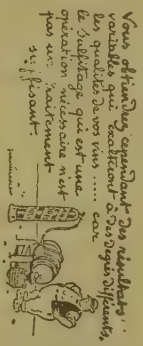 Vous obtiendrez cependant des résultats..
variables qui exalteront à des degrés différents,
les qualités de vos vins ..... car
le Sulfitage qui est une
opération nécessaire n'est
pas un traitement
suffisant.